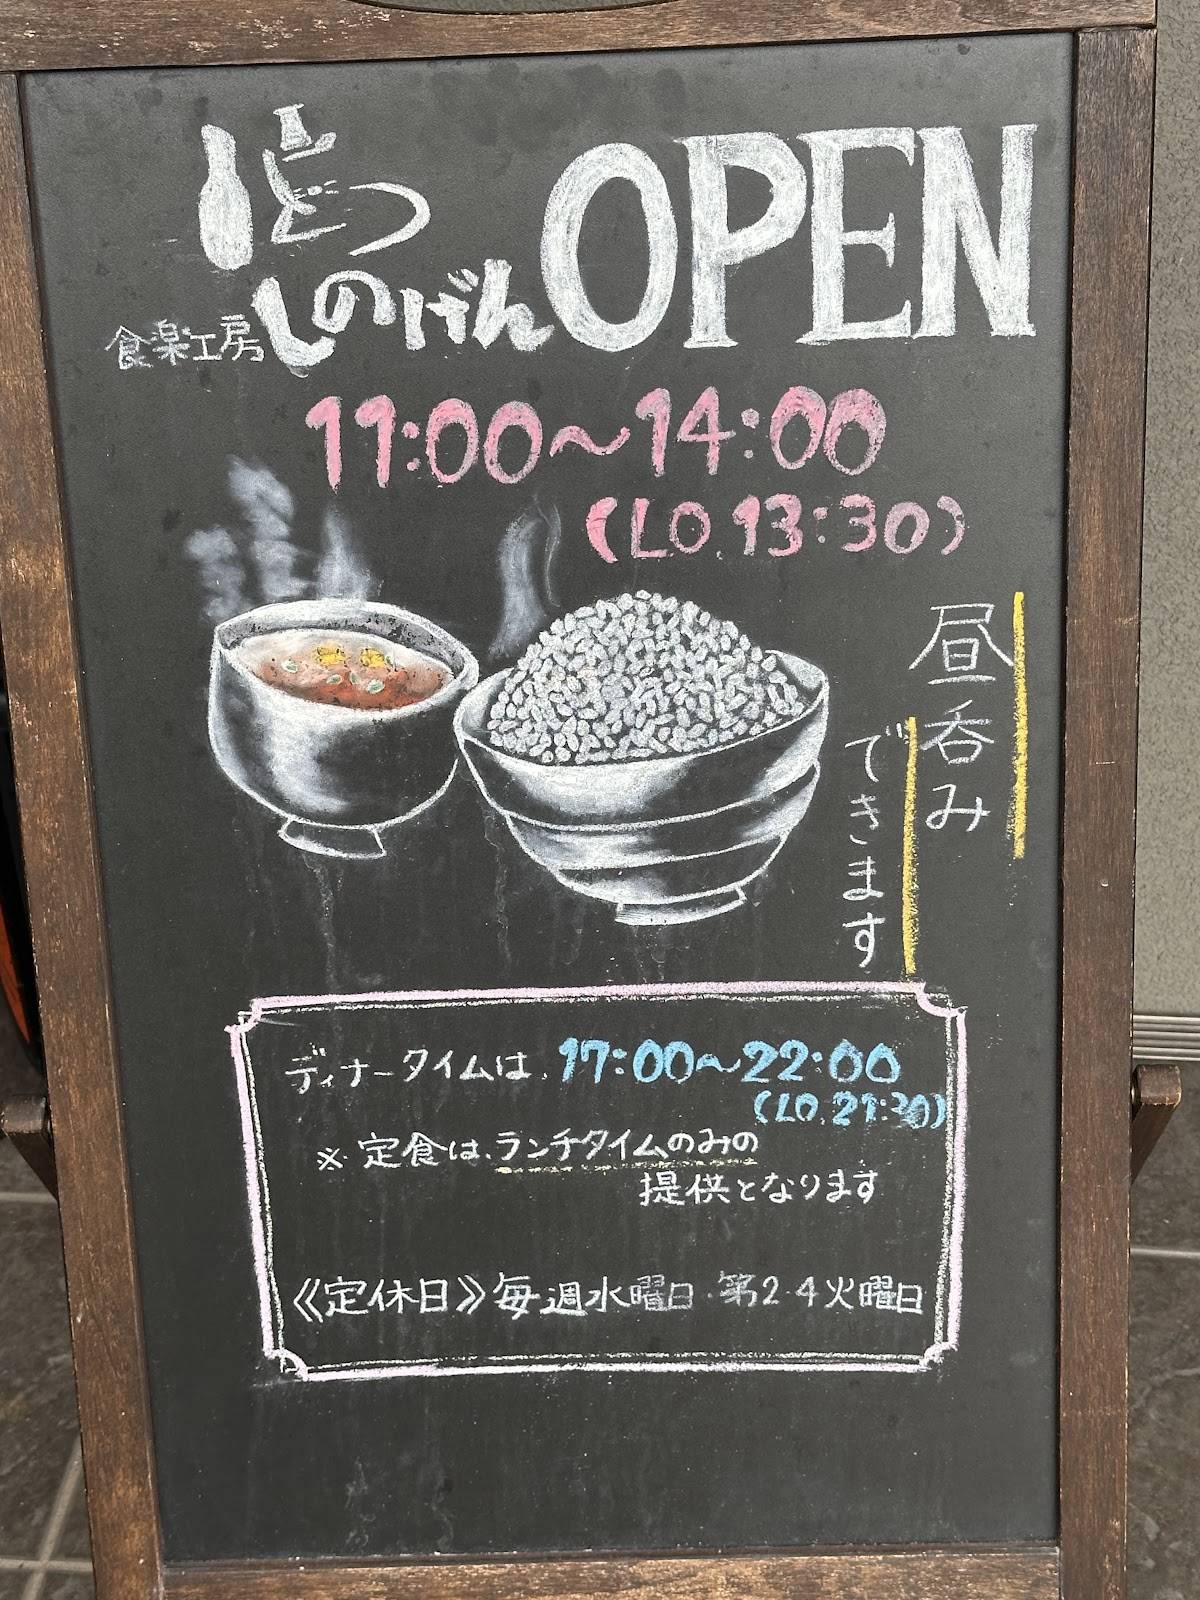 OPEN
食楽工房
しのげん
11:00～14:00
(LO.13:30)
昼呑み
できます
ディナータイムは、17:00～22:00
(LO.21:30)
※定食は、ランチタイムのみの
提供となります
《定休日》毎週水曜日・第2・4火曜日